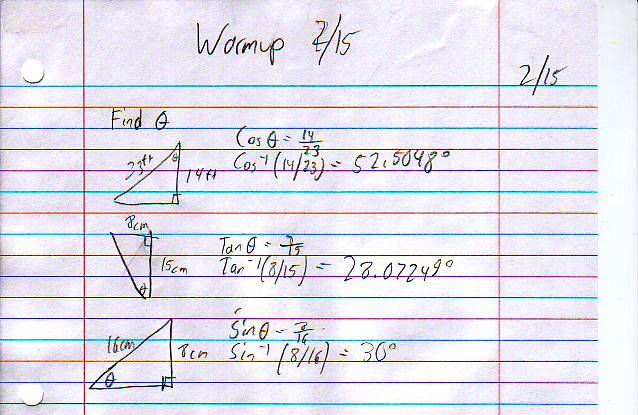 Warmup 2/15
2/15
Find θ
23ft
θ
14ft
Cos θ = 14/23
Cos⁻¹(14/23) = 52.5048°
8cm
15cm
θ
Tan θ = 8/15
Tan⁻¹(8/15) = 28.07249°
16cm
8cm
θ
Sin θ = 8/16
Sin⁻¹(8/16) = 30°